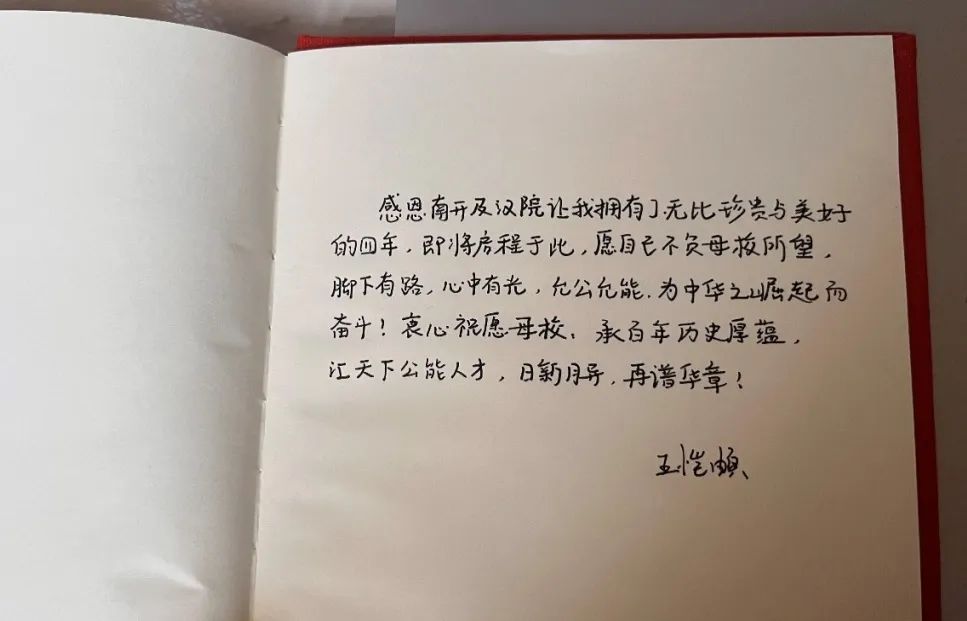 感恩南开及汉院让我拥有了无比珍贵与美好
的四年，即将启程于此，愿自己不负母校所望，
脚下有路，心中有光，允公允能，为中华之崛起而
奋斗！衷心祝愿母校，承百年历史厚蕴，
汇天下公能人才，日新月异，再谱华章！
王恺